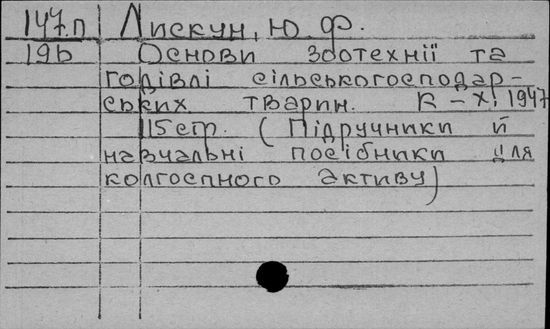 147.п Лискун, Ю. Ф.
19ь Основи зоотехнії та
годівлі сільськогосподар-
ських тварин. К - Х, 1947
115 стр. (Підручники й
навчальні посібники для
колгоспного активу)